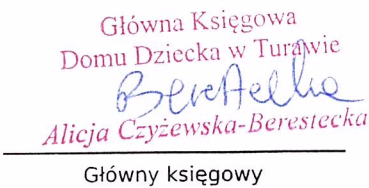 Główna Księgowa
Domu Dziecka w Turawie
Berestecka
Alicja Czyżewska-Berestecka
Główny księgowy